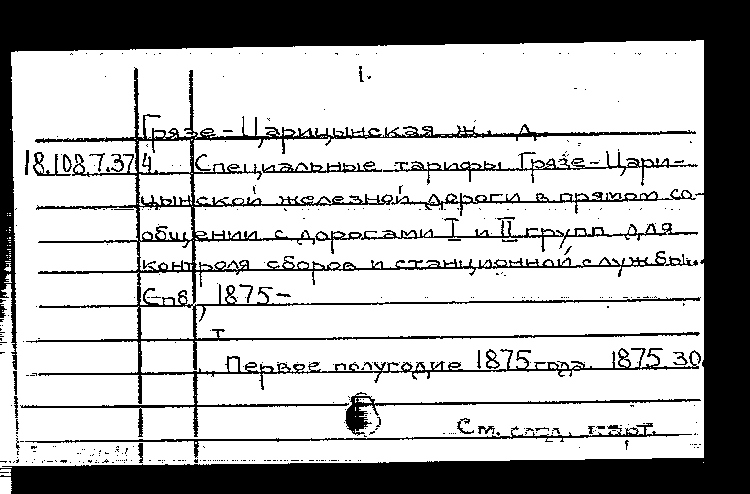 1.
Грязе-Царицынская ж. д.
18.108.7.374. Специальные тарифы Грязе-Цари-
цынской железной дороги в прямом со-
общении с дорогами I и II групп для
контроля сборов и станционной службы..
Спб, 1875-
т
Первое полугодие 1875 года. 1875. 30
См. след. карт.